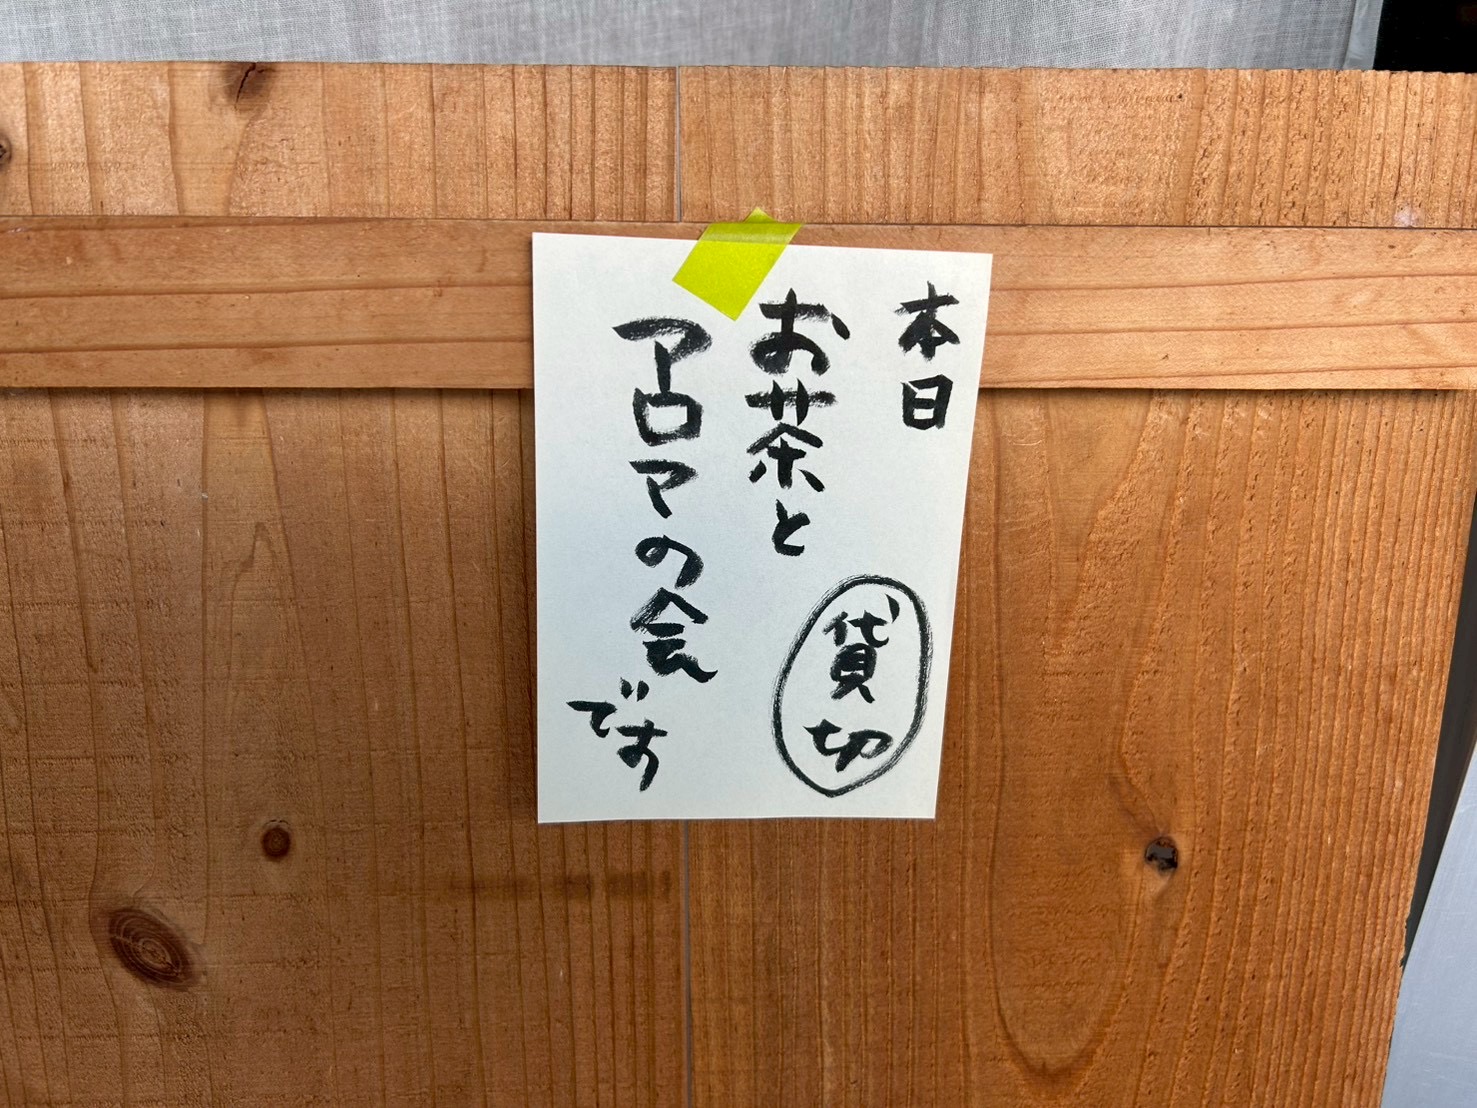 本日
貸切
お茶と
アロマの会
です